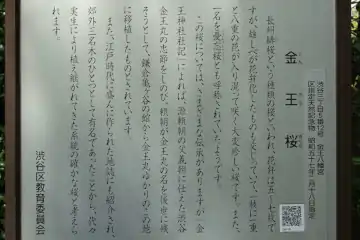 渋谷区渋谷三丁目五番十二号 金王八幡宮
区指定天然記念物(昭和五十七年三月十八日指定)
金王桜
長州緋桜という種類の桜といわれ、花弁は五~七枚で
すが、雄しべが花弁化したものも交じっていて、一枝に一重
と八重の花が入り混って咲く大変珍しい桜です。また、
一名を憂忘桜とも呼称されていたようです。
この桜については、さまざまな伝承がありますが、金
王神社社記によれば、源頼朝の父義朝に仕えた渋谷
金王丸の忠節をしのび、頼朝が金王丸の名を後世に残
そうとして、鎌倉亀ヶ谷の館から金王丸ゆかりのこの地
に移植したものとされています。
また、江戸時代に盛んに作られた地誌にも紹介され、
郊外三名木のひとつとして有名であったことから、代々
実生により植え継がれてきた系統の確かな桜と考えら
れます。
渋谷区教育委員会